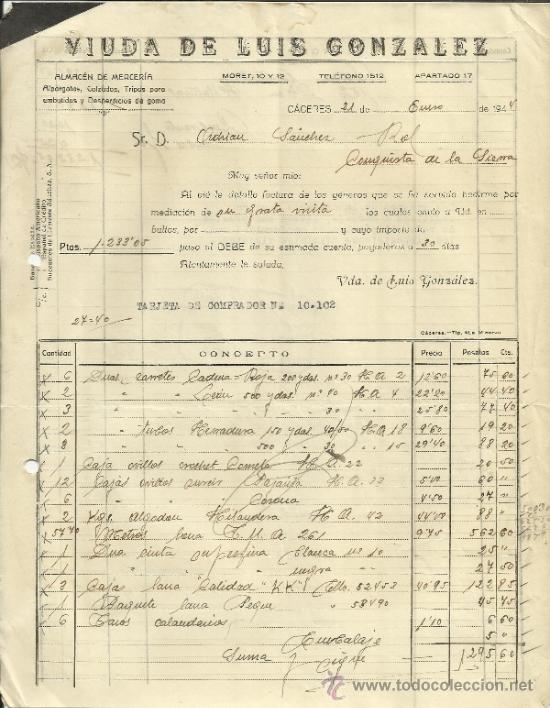 VIUDA DE LUIS GONZALEZ
ALMACÉN DE MERCERÍA
Alpargatas, Calzados, Tripas para
embutidos y Desperdicios de goma
MORET, 10 Y 12 TELÉFONO 1512 APARTADO 17
CÁCERES 21 de Enero de 194
Sr. D. Adrian Sánchez Rol
Conquista de la Sierra
Muy señor mio:
Al pié le detallo factura de los géneros que se ha servido pedirme por
mediación de su grata visita los cuales envio a Vd. en
bultos, por y cuyo importe de
Ptas. 1.233'05 paso al DEBE de su estimada cuenta, pagaderos a 30 días
Atentamente le saluda,
Vda. de Luis González.
TARJETA DE COMPRADOR Nº 10.102
27=40
Cáceres.-Tip.
Cantidad CONCEPTO Precio Pesetas Cts.
6 Dnas. carretes Cadena Roja 200 ydas. nº 30 H.A. 2 12'60 75 60
2 " " 500 ydas nº 80 H.A. 4 22'20 44 40
3 " " " 30 25'80 77 40
2 " tubos Herradura 150 yds 40/50 H.A. 18 9'60 19 20
3 " " 500 30 " 15 29'40 88 20
1 Caja ovillos crochet Cometa H.A. 22 20 50
12 Cajas ovillos H.A. 23 5'00 60 "
6 " " Corona 4'50 27 "
2 Kgs. Algodon Hilandera H.A. 42 44'00 88 "
lana E.M.A 261 9'75 562 60
1 Dna cinta blanca nº 10 25 "
1 " " negra 27 50
3 Cajas lana Calidad "KK" 52453 40'95 122 85
1 Paquete lana " 58490 45 45
6 calendarios 1'10 6 60
Embalaje 5 "
Suma 1295 60
todocoleccion
www.todocoleccion.net